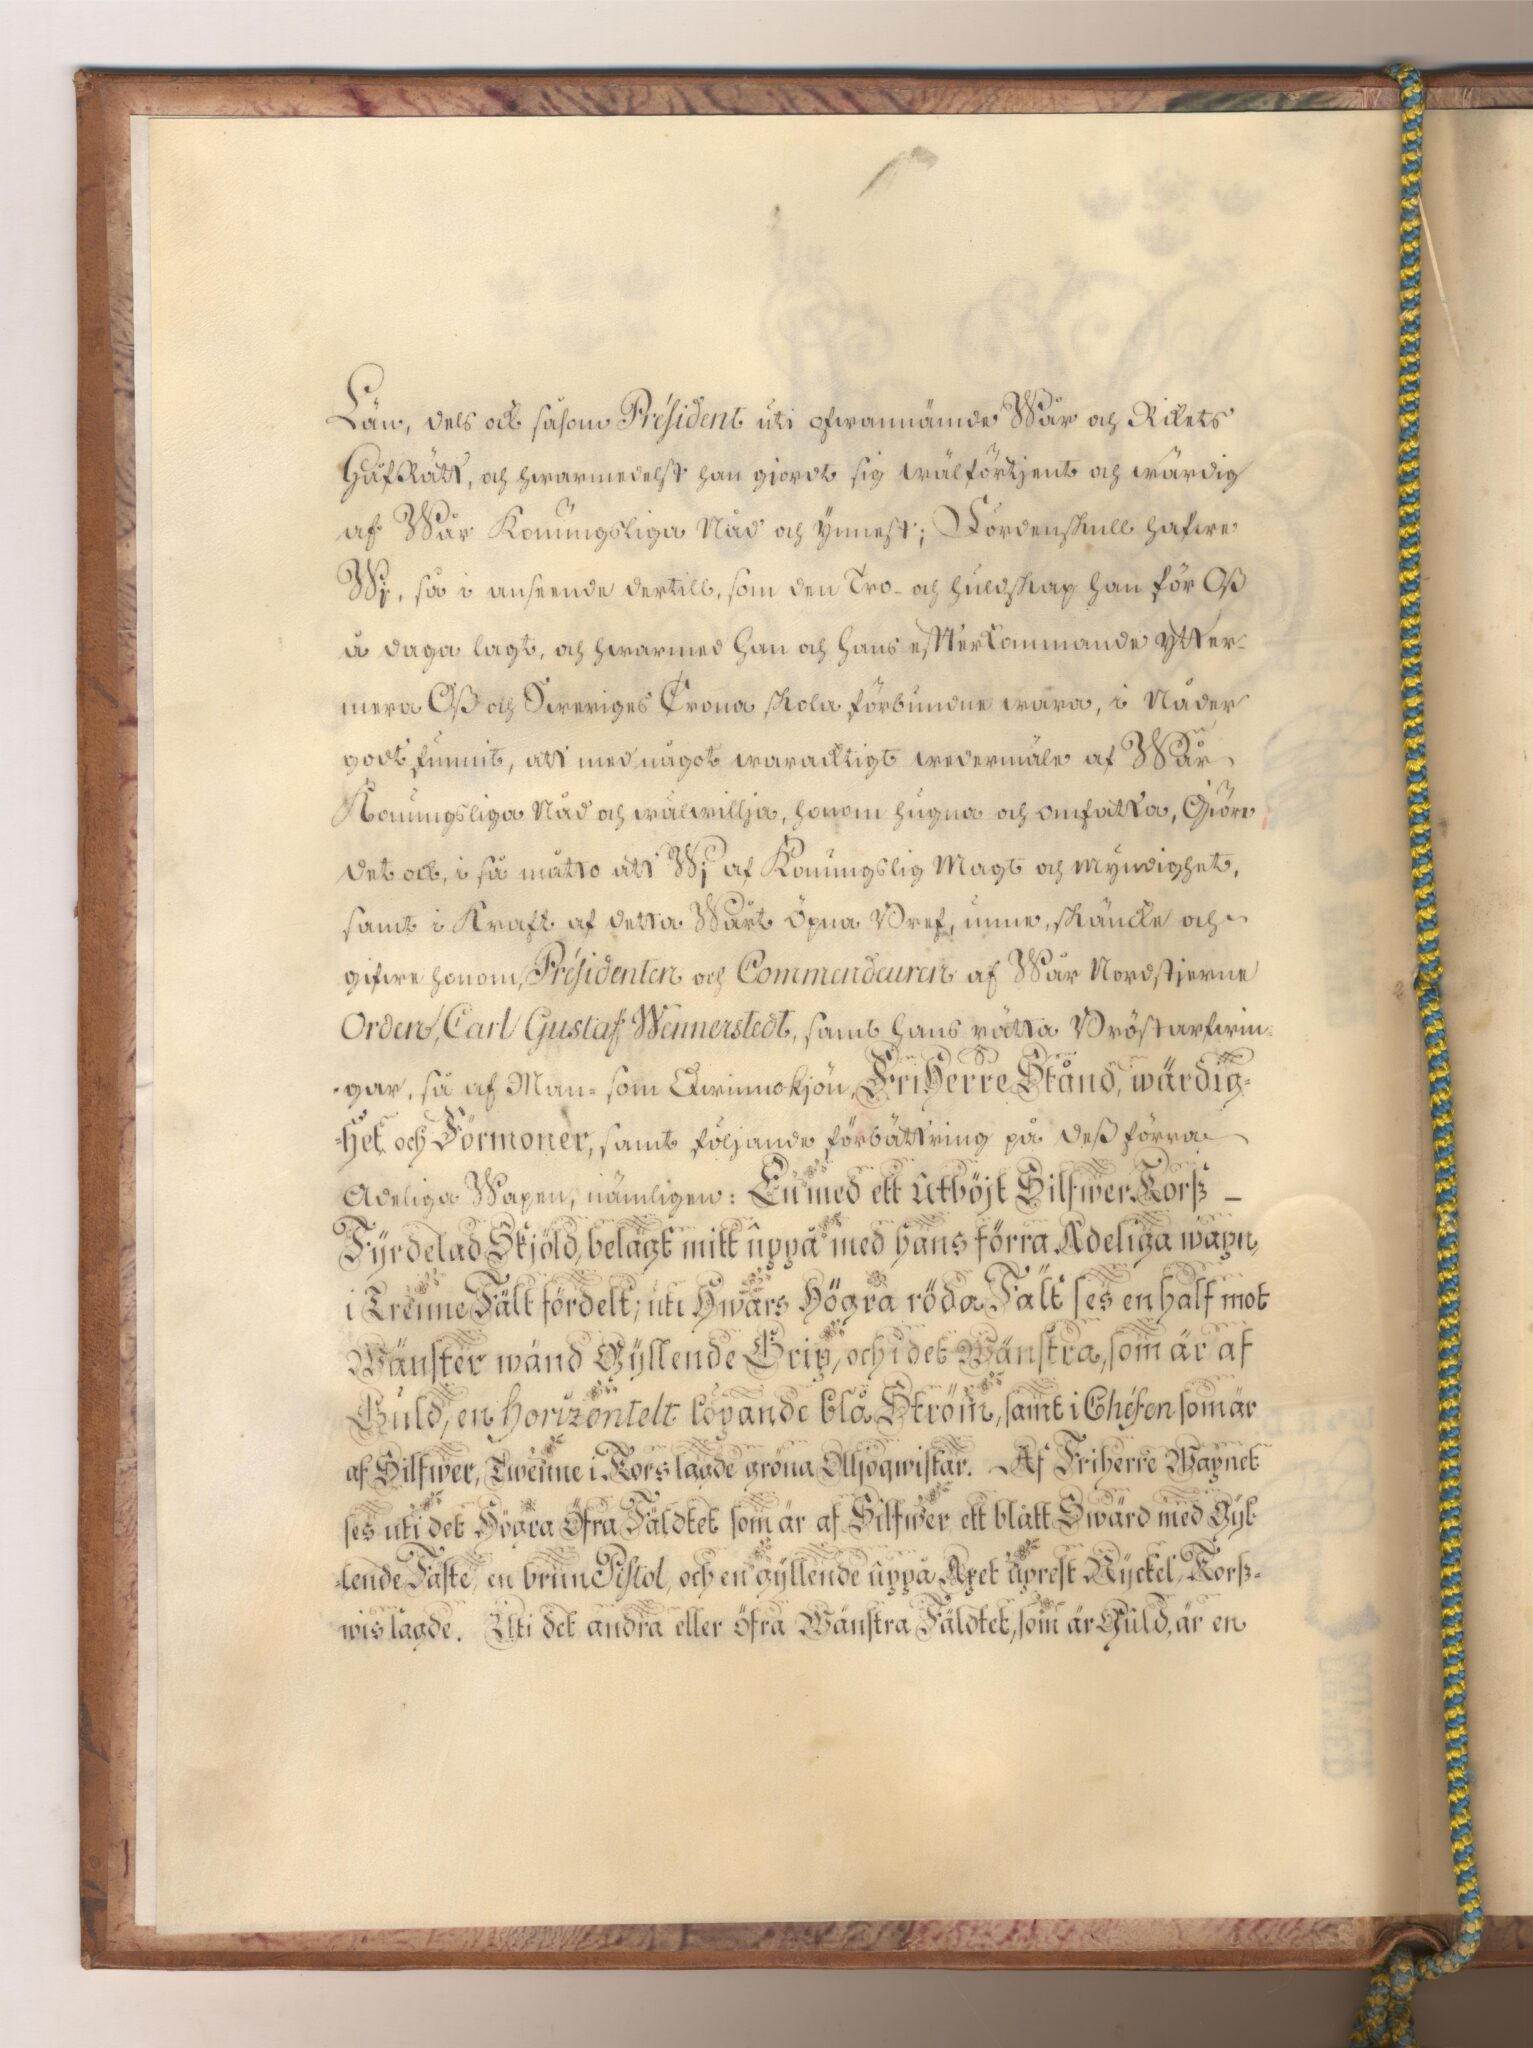 Län, dels ock såsom Président uti ofwannämde Wår och Rikets
HåfRätt, och hwarmedelst han gjordt sig wälförtjent och wärdig
af Wår Konungsliga Nåd och Ynnest; Fördenskull hafwe
Wi, så i anseende dertill, som den Tro- och huldskap han för Oß
å daga lagt, och hwarmed Han och Hans effterkommande ytter-
mera Oß och Sweriges Crona skola förbundne wara, i Nåder
godt funnit, att med något waracktigt wedermäle af Wår
Konungsliga Nåd och wälwillja, honom hugna och omfatta, Giöre
det ock, i så måtto att Wi af Konungslig Magt och Myndighet,
samt i Kraft af detta Wårt Öpna Bref, unne, skäncke och
gifwe honom, Présidenten och Commendeuren af Wår Nordstjerne
Orden, Carl Gustaf Wennerstedt, samt hans rätta Bröstarfwin-
-gar, så af Man- som Qwinnokjön, FriHerre Stånd, wärdig-
-het och Förmoner, samt följande förbättring på deß förra
Adeliga Wapen, nämligen: En med ett Utböjt Silfwer Korß –
Fyrdelad Skjöld, belagt mitt uppå med hans förra Adeliga wapn,
i Trenne Fält fördelt; uti Hwars Högra röda Fält ses en half mot
Wänster wänd Gyllende Grip, och i det Wänstra, som är af
Guld, en Horizontelt löpande blå Ström, samt i Chefen som är
af Silfwer, Twenne i Kors lagde gröna Oljoqwistar. Af Friherre Wapnet
ses uti det Högra Öfra Fäldtet som är af Silfwer ett blått Swärd med Gyl-
-lende Fäste, en brun Pistol, och en gyllende uppå Axet uprest Nyckel, Korß-
wis lagde. Uti det andra eller öfra Wänstra Fäldtet, som är Guld, är en